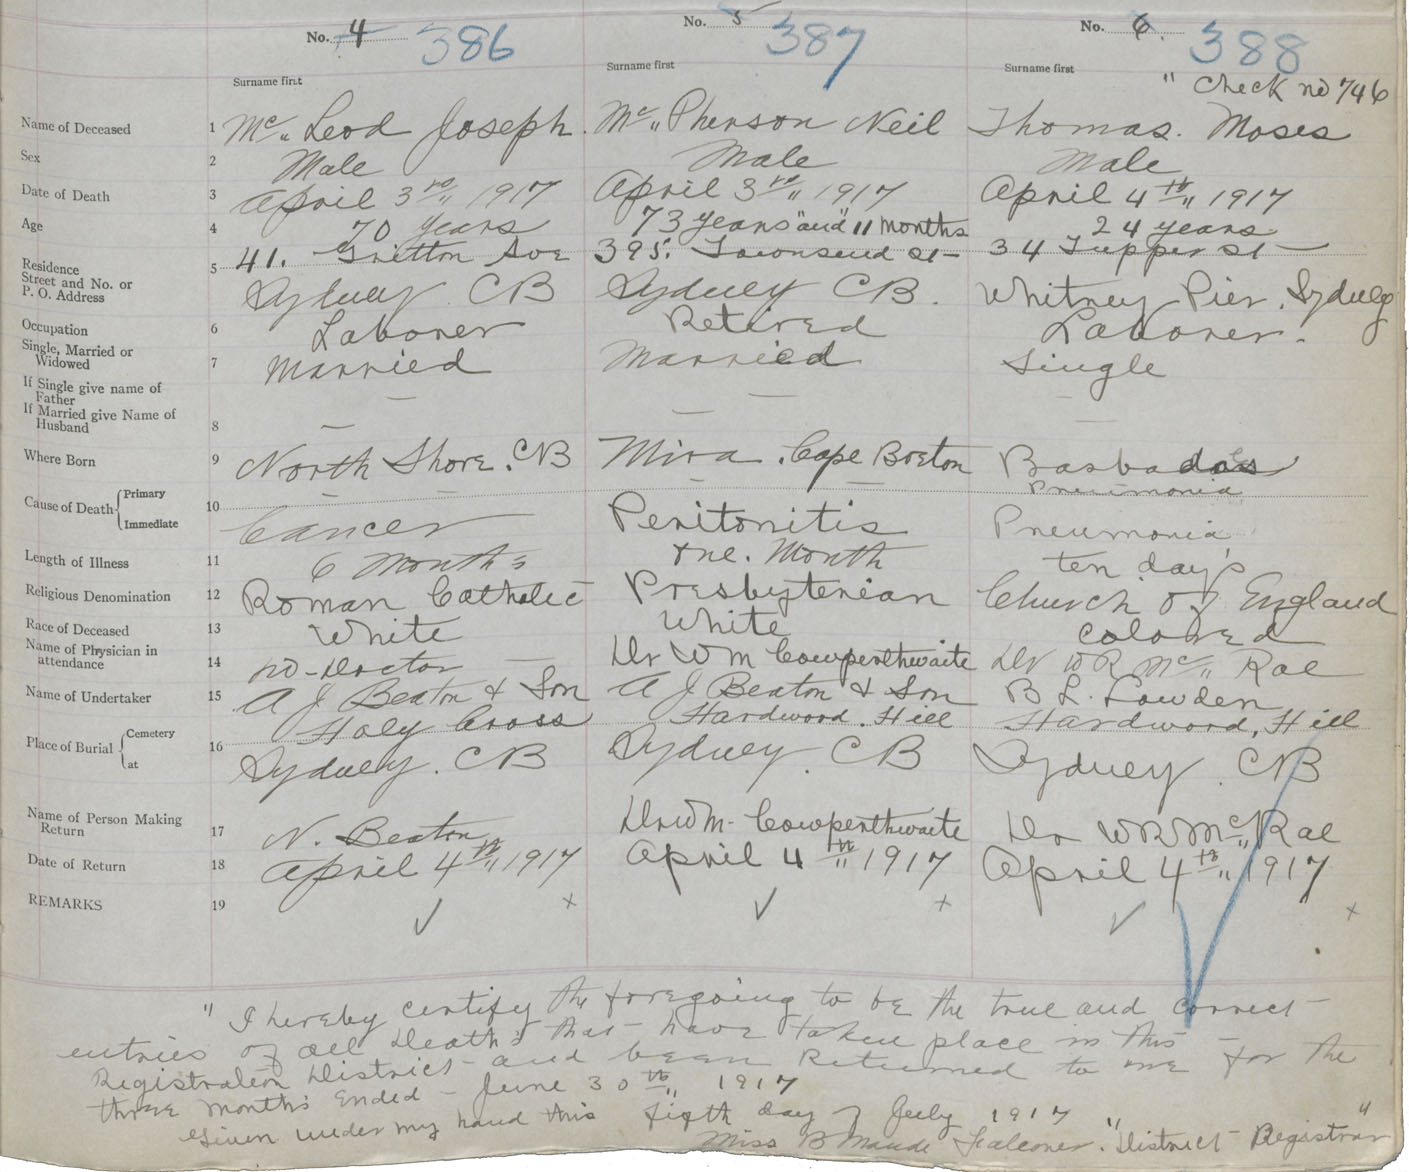 No. 4 386 No. 5 387 No. 6. 388
Surname first Surname first Surname first " Check no 746
Name of Deceased 1 Mc„ Leod Joseph. Mc„ Pherson Neil Thomas. Moses
Sex 2 Male Male Male
Date of Death 3 April 3rd„ 1917 April 3rd„ 1917 April 4th„ 1917
Age 4 70 years 73 years "and" 11 months 24 years
Residence 5 41. Ave 395. Townsend St 34 Tupper St
Street and No. or P. O. Address Sydney CB Sydney CB. Whitney Pier, Sydney
Occupation 6 Laborer Retired Laborer.
Single, Married or Widowed 7 Married Married Single
If Single give name of Father
If Married give Name of Husband 8 — — —
Where Born 9 North Shore. CB Mira. Cape Breton Barbados
Cause of Death Primary 10 — — — — Pneumonia
Immediate Cancer Peritonitis Pneumonia
Length of Illness 11 6 Months one. Month ten days
Religious Denomination 12 Roman Catholic Presbyterian Church of England
Race of Deceased 13 White White Colored
Name of Physician in attendance 14 no Doctor — Dr Wm Cowperthwaite Dr W R Mc„ Rae
Name of Undertaker 15 A J Beaton & Son A J Beaton & Son B L. Lowden
Place of Burial Cemetery 16 Holy Cross Hardwood. Hill Hardwood, Hill
at Sydney. CB Sydney. CB Sydney. CB
Name of Person Making Return 17 N. Beaton Dr Wm. Cowperthwaite Dr W R Mc„ Rae
Date of Return 18 April 4th„ 1917 April 4th„ 1917 April 4th„ 1917
REMARKS 19 ✓ + ✓ + ✓ +
" I hereby certify the foregoing to be the true and correct
entries of all Deaths that have taken place in this
Registration District and been Returned to me for the
three months Ended June 30th„ 1917
Given under my hand this day of July 1917 "
Miss B Maude Falconer. "District Registrar